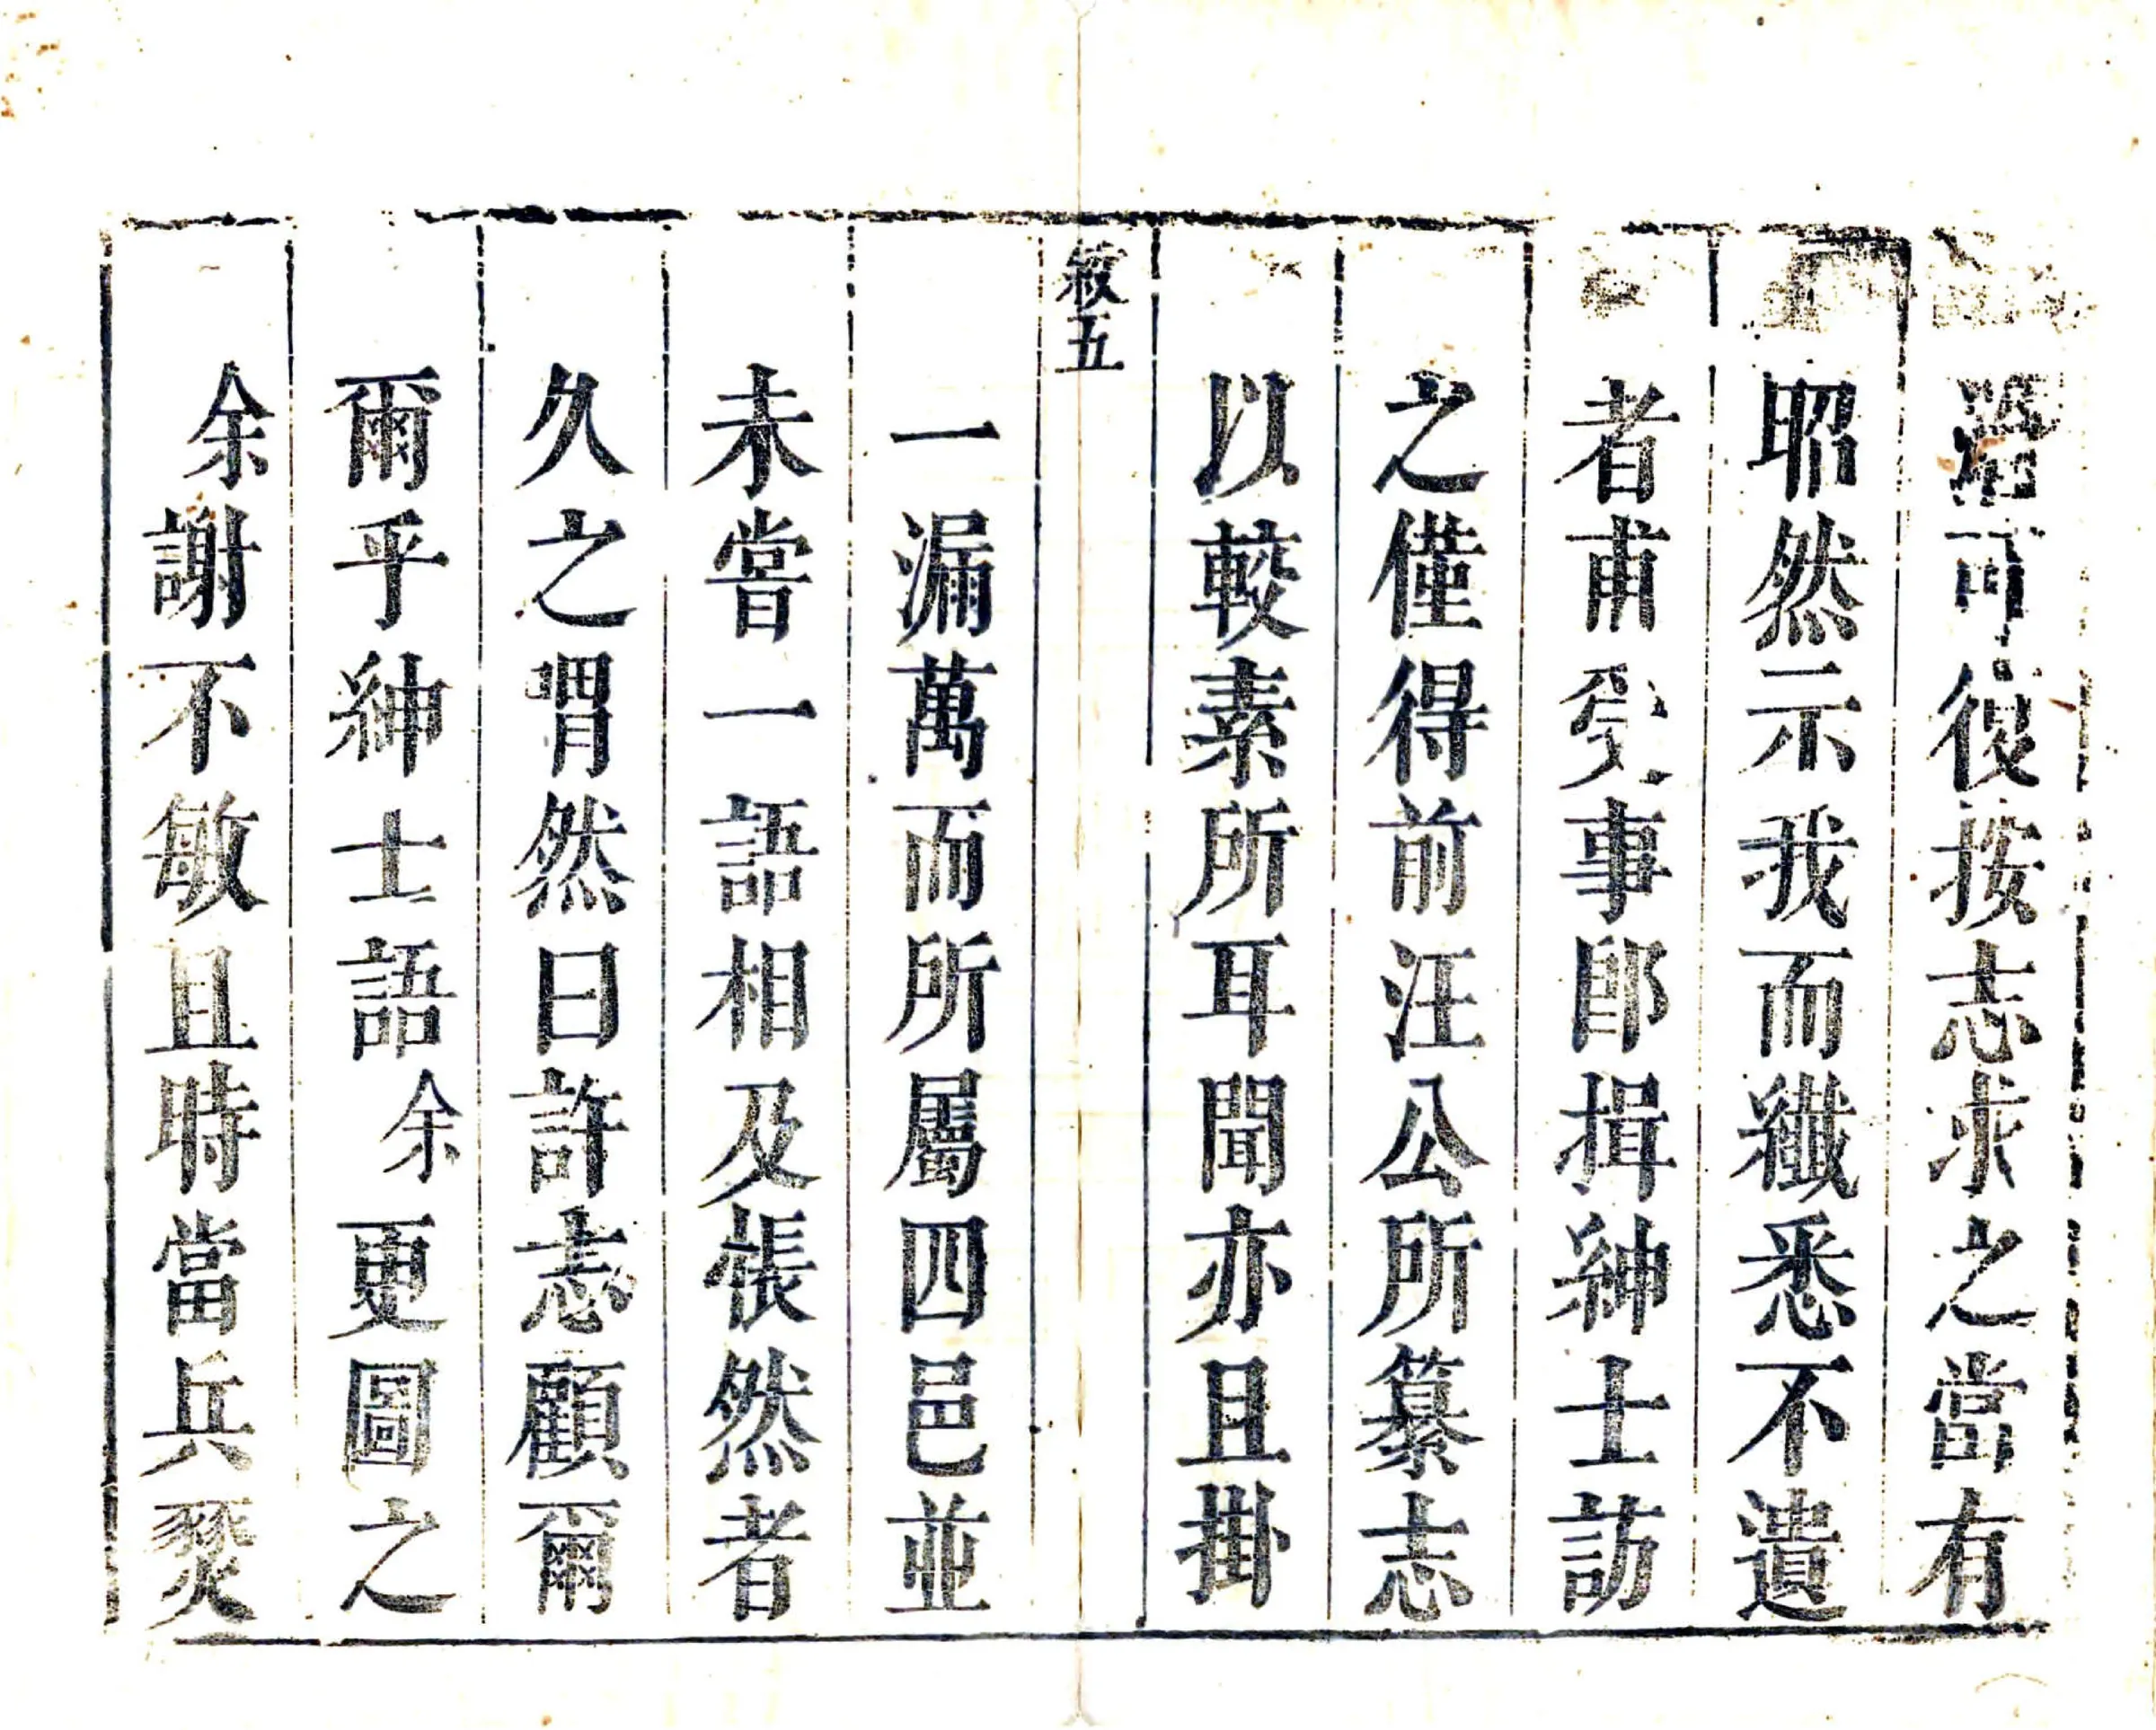 可復按志求之當有
昭然示我而纎悉不遺
者甫受事卽揖紳士訪
之僅得前汪公所纂志
以較素所耳聞亦且掛
敘五
一漏萬而所屬四邑並
未嘗一語相及悵然者
久之喟然曰許志顧爾
爾乎紳士語余更圖之
余謝不敏且時當兵燹